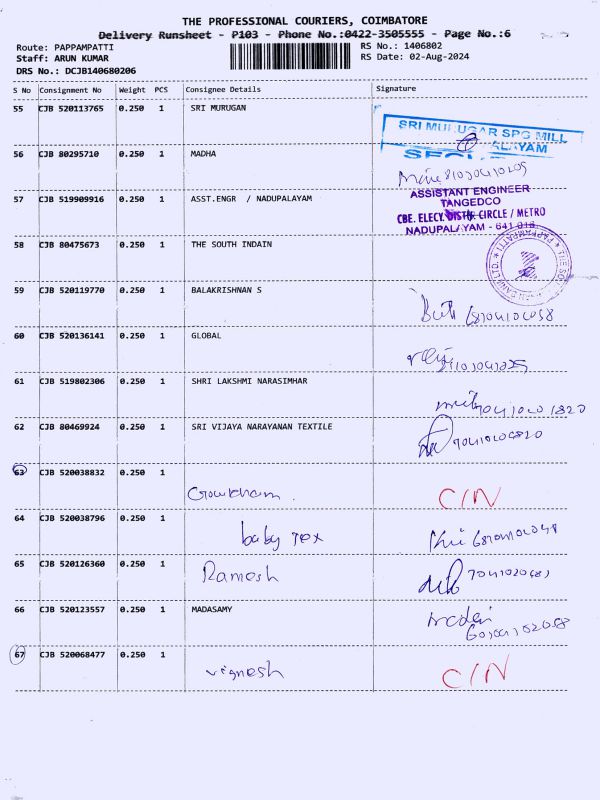 THE PROFESSIONAL COURIERS, COIMBATORE
Delivery Runsheet - P103 - Phone No.:0422-3505555 - Page No.:6
Route: PAPPAMPATTI RS No.: 1406802
Staff: ARUN KUMAR RS Date: 02-Aug-2024
DRS No.: DCJB140680206
S No Consignment No Weight PCS Consignee Details Signature
55 CJB 520113765 0.250 1 SRI MURUGAN
SRI MURUGAR SPG MILL
56 CJB 80295710 0.250 1 MADHA
ASSISTANT ENGINEER
TANGEDCO
57 CJB 519909916 0.250 1 ASST.ENGR / NADUPALAYAM
CBE. ELECY. DISTN. CIRCLE / METRO
NADUPALAYAM - 641 016
58 CJB 80475673 0.250 1 THE SOUTH INDAIN
59 CJB 520119770 0.250 1 BALAKRISHNAN S
60 CJB 520136141 0.250 1 GLOBAL
61 CJB 519802306 0.250 1 SHRI LAKSHMI NARASIMHAR
62 CJB 80469924 0.250 1 SRI VIJAYA NARAYANAN TEXTILE
63 CJB 520038832 0.250 1
C/N
64 CJB 520038796 0.250 1
baby Tex
65 CJB 520126360 0.250 1
Ramesh
66 CJB 520123557 0.250 1 MADASAMY
67 CJB 520068477 0.250 1
vignesh C/N